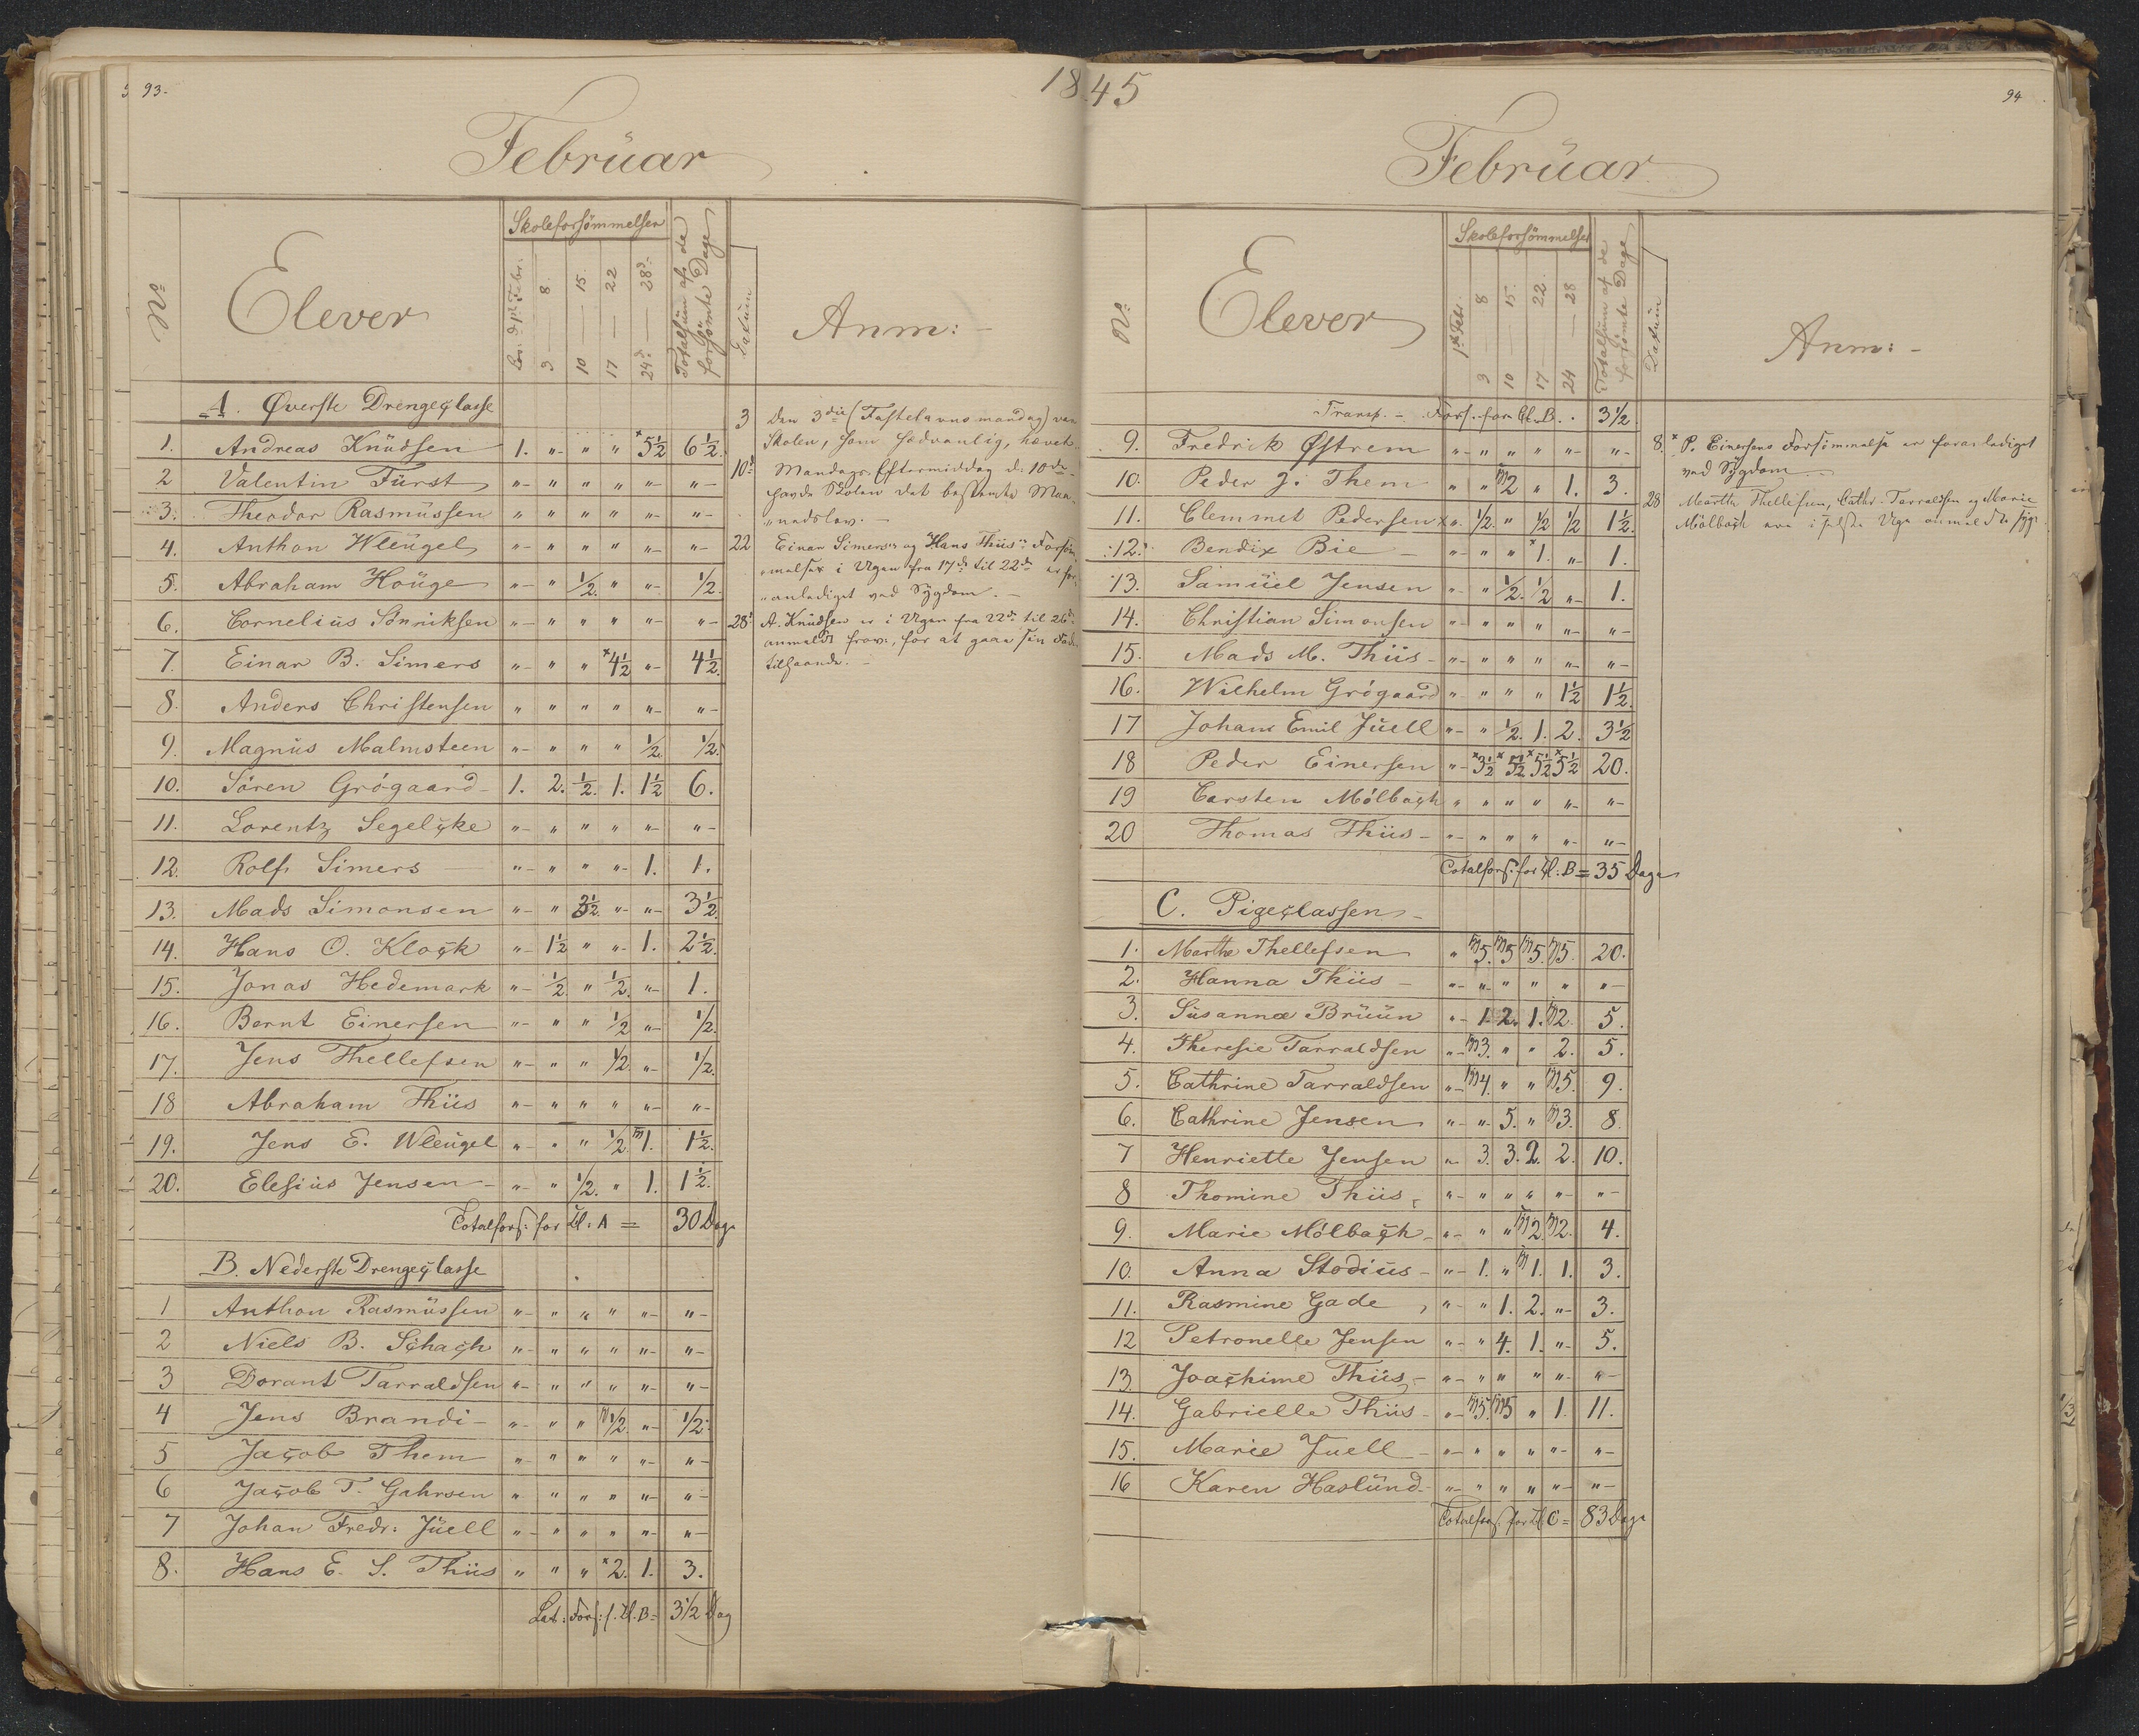 93.
1845
Februar
Skoleforsömmelser
No
Elever
Lör: d. 1ste Febr:
3 — 8.
10 — 15.
17 — 22
24de — 28de
Totalsum af de forsömte Dage
Datum
Anm:
A. Øverste Drengeclasse
1. Andreas Knudsen 1. " " " ×5½ 6½
2 Valentin Fürst " " " " " "
3. Theodor Rasmussen " " " " " "
4. Anthon Wleugel " " " " " "
5. Abraham Houge " " ½. " " ½.
6. Cornelius Sönniksen " " " " " "
7. Einar B. Simers " " " ×4½ " 4½.
8. Anders Christensen " " " " " "
9. Magnus Malmsteen " " " " ½. ½.
10. Sören Grögaard 1. 2. ½. 1. 1½ 6.
11. Lorentz Segelcke " " " " " "
12. Rolf Simers " " " " 1. 1.
13. Mads Simonsen " " 3½. " " 3½.
14. Hans O. Klock " 1½ " " 1. 2½.
15. Jonas Hedemark " ½. " ½. " 1.
16. Bernt Einersen " " " ½ " ½.
17. Jens Thellefsen " " " ½. " ½.
18 Abraham Thiis " " " " " "
19. Jens E. Wleugel " " " ½. m1. 1½.
20. Elesius Jensen " " ½. " 1. 1½.
Totalfors: for Cl. A = 30 Dage
B. Nederste Drengeclasse
1 Anthon Rasmussen " " " " " "
2 Niels B. Schach " " " " " "
3 Dorant Tarraldsen " " " " " "
4 Jens Brandi " " " m½. " ½.
5 Jacob Them " " " " " "
6 Jacob T. Gahrsen " " " " " "
7 Johan Fredr: Juell " " " " " "
8. Hans E. S. Thiis " " " ×2. 1. 3.
Lat: Fors: f. Cl. B = 3½ Dag
3 Den 3die (Fastelavnsmandag) var
Skolen, som sædvanlig, hævet.
10de Mandags Eftermiddag d: 10de
havde Skolen det bestemte Maa-
"nedslov. —
22 Einar Simers's og Hans Thiis's Forsöm-
"melser i Ugen fra 17de til 22de er for-
"anlediget ved Sygdom. —
28de A. Knudsen er i Ugen fra 22de til 26de
anmeldt frav:, for at gaae sin Fader
tilhaande. —
94
Februar
Skoleforsömmelser
No:
Elever
1ste Febr.
3 — 8
10 — 15.
17 — 22.
24 — 28
Totalsum af de forsömte Dage
Datum
Anm: -
Transp. - Fors. for Cl. B. . 3½
9. Fredrik Østrem " " " " " "
10. Peder J. Them " " m2 " 1. 3.
11. Clemmet Pedersen × " ½. " ½ ½ 1½.
12. Bendix Bie " " " ×1. " 1.
13. Samuel Jensen " " ½. ½ " 1.
14. Christian Simonsen " " " " " "
15. Mads M. Thiis " " " " " "
16. Wilhelm Grögaard " " " " 1½ 1½.
17 Johan Emil Juell " " ½. 1. 2. 3½
18 Peder Einersen " ×3½ ×5½ ×5½ ×5½ 20.
19 Carsten Mölbach " " " " " "
20 Thomas Thiis " " " " " "
Totalfors: for Cl: B = 35 Dage
C. Pigeclassen
1. Marthe Thellefsen " m5. m5 m5. m5. 20.
2. Hanna Thiis " " " " " "
3. Susanna Bruun " 1. 2. 1. m2. 5.
4. Theresie Tarraldsen " m3. " " 2. 5.
5. Cathrine Tarraldsen " m4. " " m5. 9.
6. Cathrine Jensen " " 5. " m3. 8.
7 Henriette Jensen " 3. 3. 2. 2. 10.
8 Thomine Thiis " " " " " "
9. Marie Mölbach " " " m2. m2. 4.
10. Anna Stodius " 1. " m1. 1. 3.
11. Rasmine Gade " " 1. 2. " 3.
12 Petronelle Jensen " " 4. 1. " 5.
13. Joachime Thiis " " " " " "
14. Gabrielle Thiis " m5. m5 " 1. 11.
15. Marie Juell " " " " " "
16 Karen Haslund " " " " " "
Totalfors. for Cl. C = 83 Dage
8. × P. Einersens Forsömmelse er foranlediget
ved Sygdom.
28 Marthe Thellefsen, Cathr. Tarraldsen og Marie
Mölbach ere i sidste Uge anmeldte syge